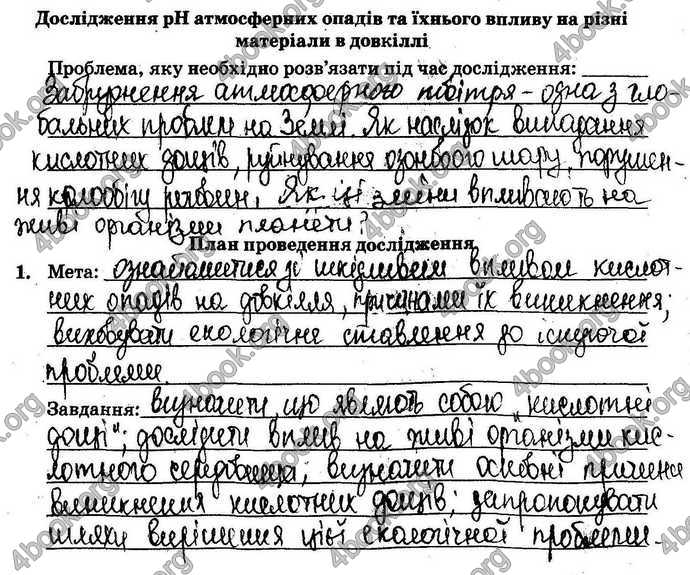 Дослідження pH атмосферних опадів та їхнього впливу на різні
матеріали в довкіллі
Проблема, яку необхідно розв'язати під час дослідження:
Забруднення атмосферного повітря – одна з гло-
бальних проблем на Землі. Як наслідок випадання
кислотних дощів, руйнування озонового шару, порушен-
ня колообігу речовин. Як ці зміни впливають на
живі організми планети?
План проведення дослідження
1. Мета: ознайомитися зі шкідливим впливом кислот-
них опадів на довкілля, причинами їх виникнення;
виховувати екологічне ставлення до існуючої
проблеми.
Завдання: визначити, що являють собою "кислотні
дощі"; дослідити вплив на живі організми кис-
лотного середовища; визначити основні причини
виникнення кислотних дощів; запропонувати
шляхи вирішення цієї екологічної проблеми.
4book.org